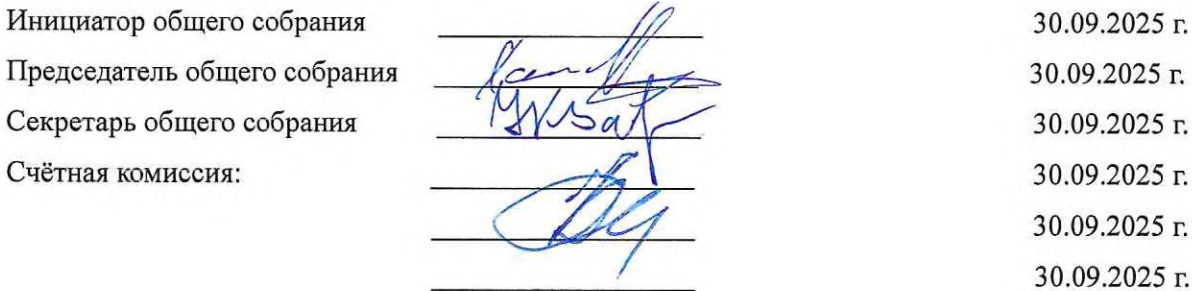 Инициатор общего собрания 30.09.2025 г.
Председатель общего собрания 30.09.2025 г.
Секретарь общего собрания 30.09.2025 г.
Счётная комиссия: 30.09.2025 г.
30.09.2025 г.
30.09.2025 г.